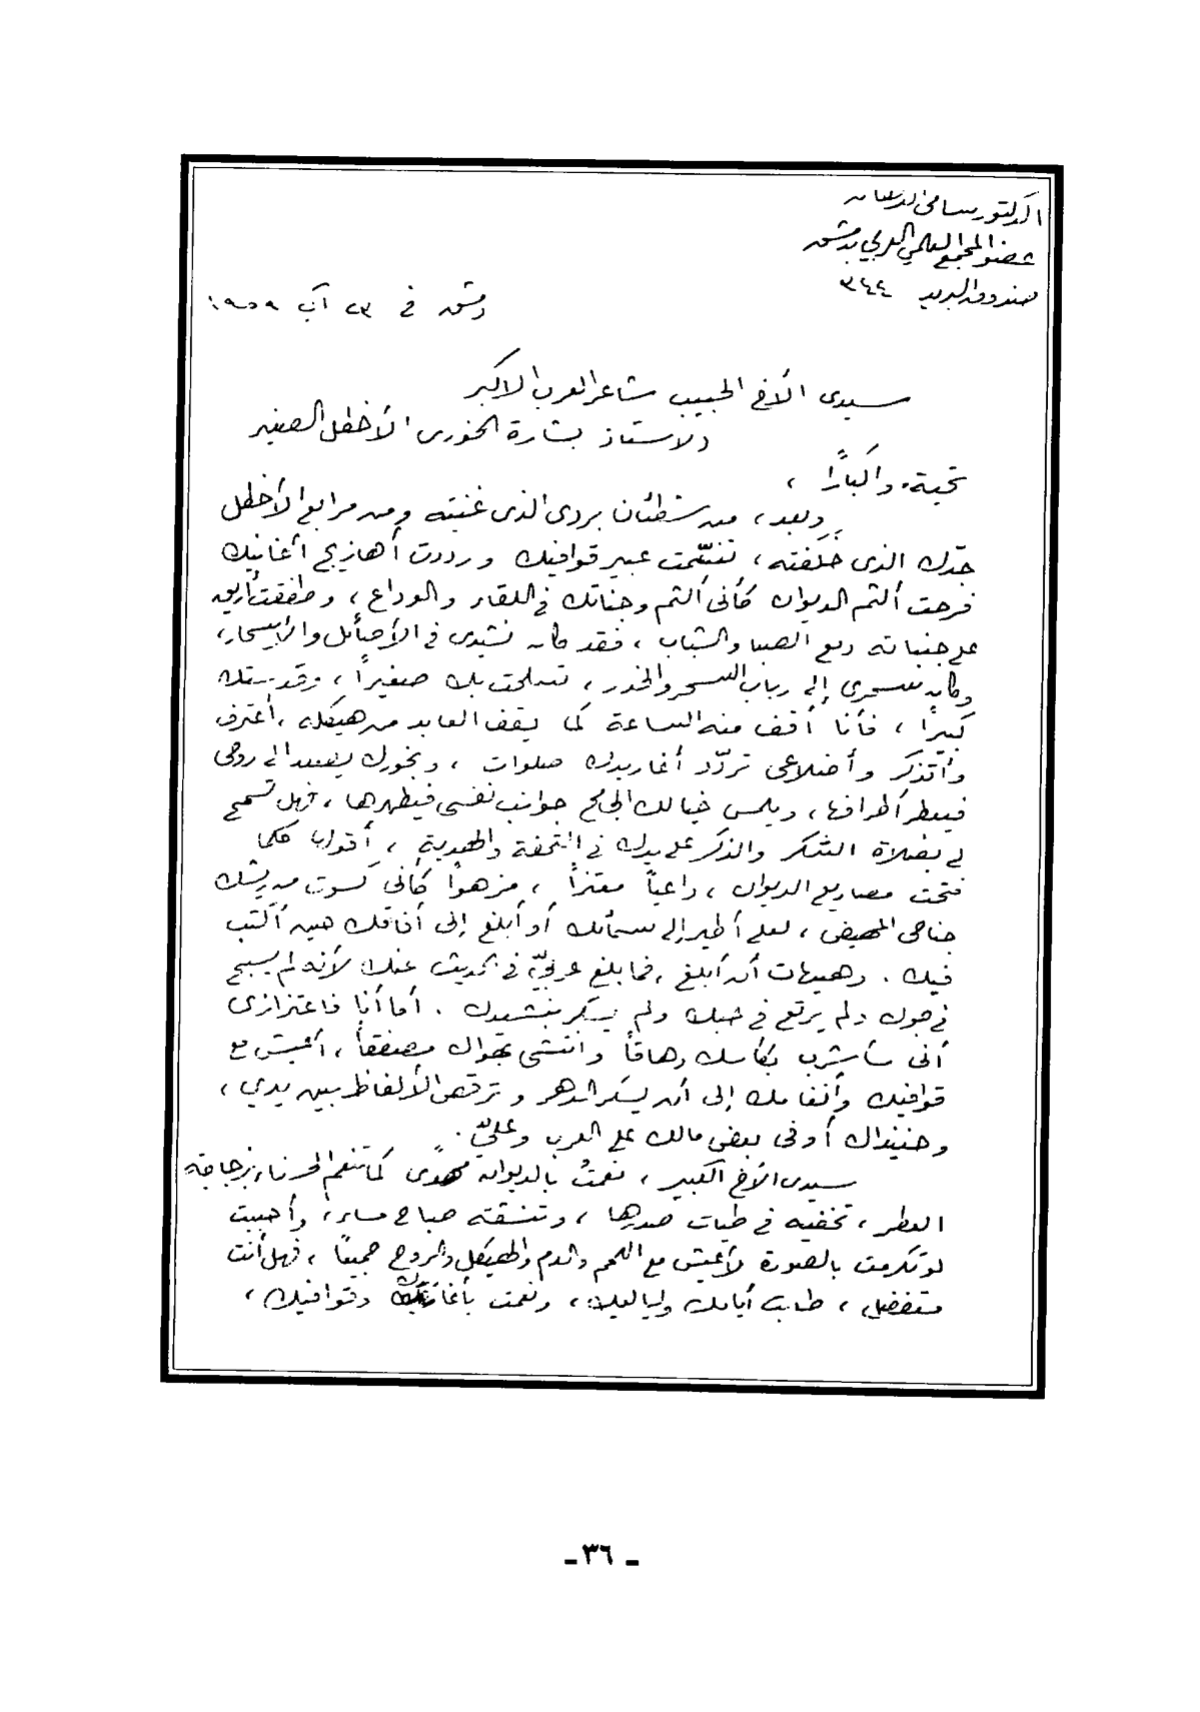 الدكتور سامي الدهان
عضو المجمع العلمي العربي بدمشق
صندوق البريد ٣٤٤
دمشق في ٢٣ آب ١٩٥٩
سيدي الأخ الحبيب شاعر العرب الأكبر
الاستاذ بشارة الخوري الأخطل الصغير
تحية وإكباراً ،
وبعد ، من شطئان بردى الذي غنيته ومن مرابع الأخطل
جدّك الذي خلفته ، تنسّمت عبير قوافيك ورددت أهازيج أغانيك
فرحت ألثم الديوان كأني ألثم وجناتك في اللقاء والوداع ، وطفقت أريق
على جنباته دمع الصبا والشباب ، فقد كان نشيدي في الأصائل والأسحار ،
وكان إلى رباب السحر والخدر ، صغيراً ، وقدستك
كبيراً ، فأنا أقف منه الساعة كما يقف العابد من هيكله ، أعترف
وأتذكر وأضلاعي تردّد أغاريدك صلوات ، وبخورك يصعد الى روحي
فيعطر أطرافها ، ويلمس خيالك الجامح جوانب نفسي فيطهرها ، فهل تسمح
لي بصلاة الشكر والذكر على يدك في التحفة والهدية ، أقولها كلما
فتحت مصاريع الديوان ، داعياً معتزاً ، مزهواً كأني كسوت من ريشك
جناحي المهيض ، لعلي أطير إلى سمائك أو أبلغ إلى آفاقك حين أكتب
فيك . وهيهات أن أبلغ ، فما بلغ عربيّ في الحديث عنك لأنه لم يسبح
في جوك ولم يرتع في حبك ولم يسكر بنشيدك . أما أنا فاعتزازي
أني سأشرب بكأسك دهاقاً وأنتشي بهواك مصفقاً ، أعيش مع
قوافيك وأنغامك إلى أن يسكر الدهر وترقص الألفاظ بين يدي ،
وحينذاك أوفي بعض مالك على العرب وعليّ .
سيدي الأخ الكبير ، نعمتُ بالديوان مهدًى كما تنعم الحسناء بزجاجة
العطر ، تخفيه في طيات صدرها ، وتنشقه صباح مساء ، وأحببت
لو تكرمت بالصورة لأعيش مع اللحم والدم والهيكل والروح جميعاً ، فهل أنت
متفضل ، طابت أيامك ولياليك ، ونعمت وقوافيك ،
ـ ٣٦ ـ